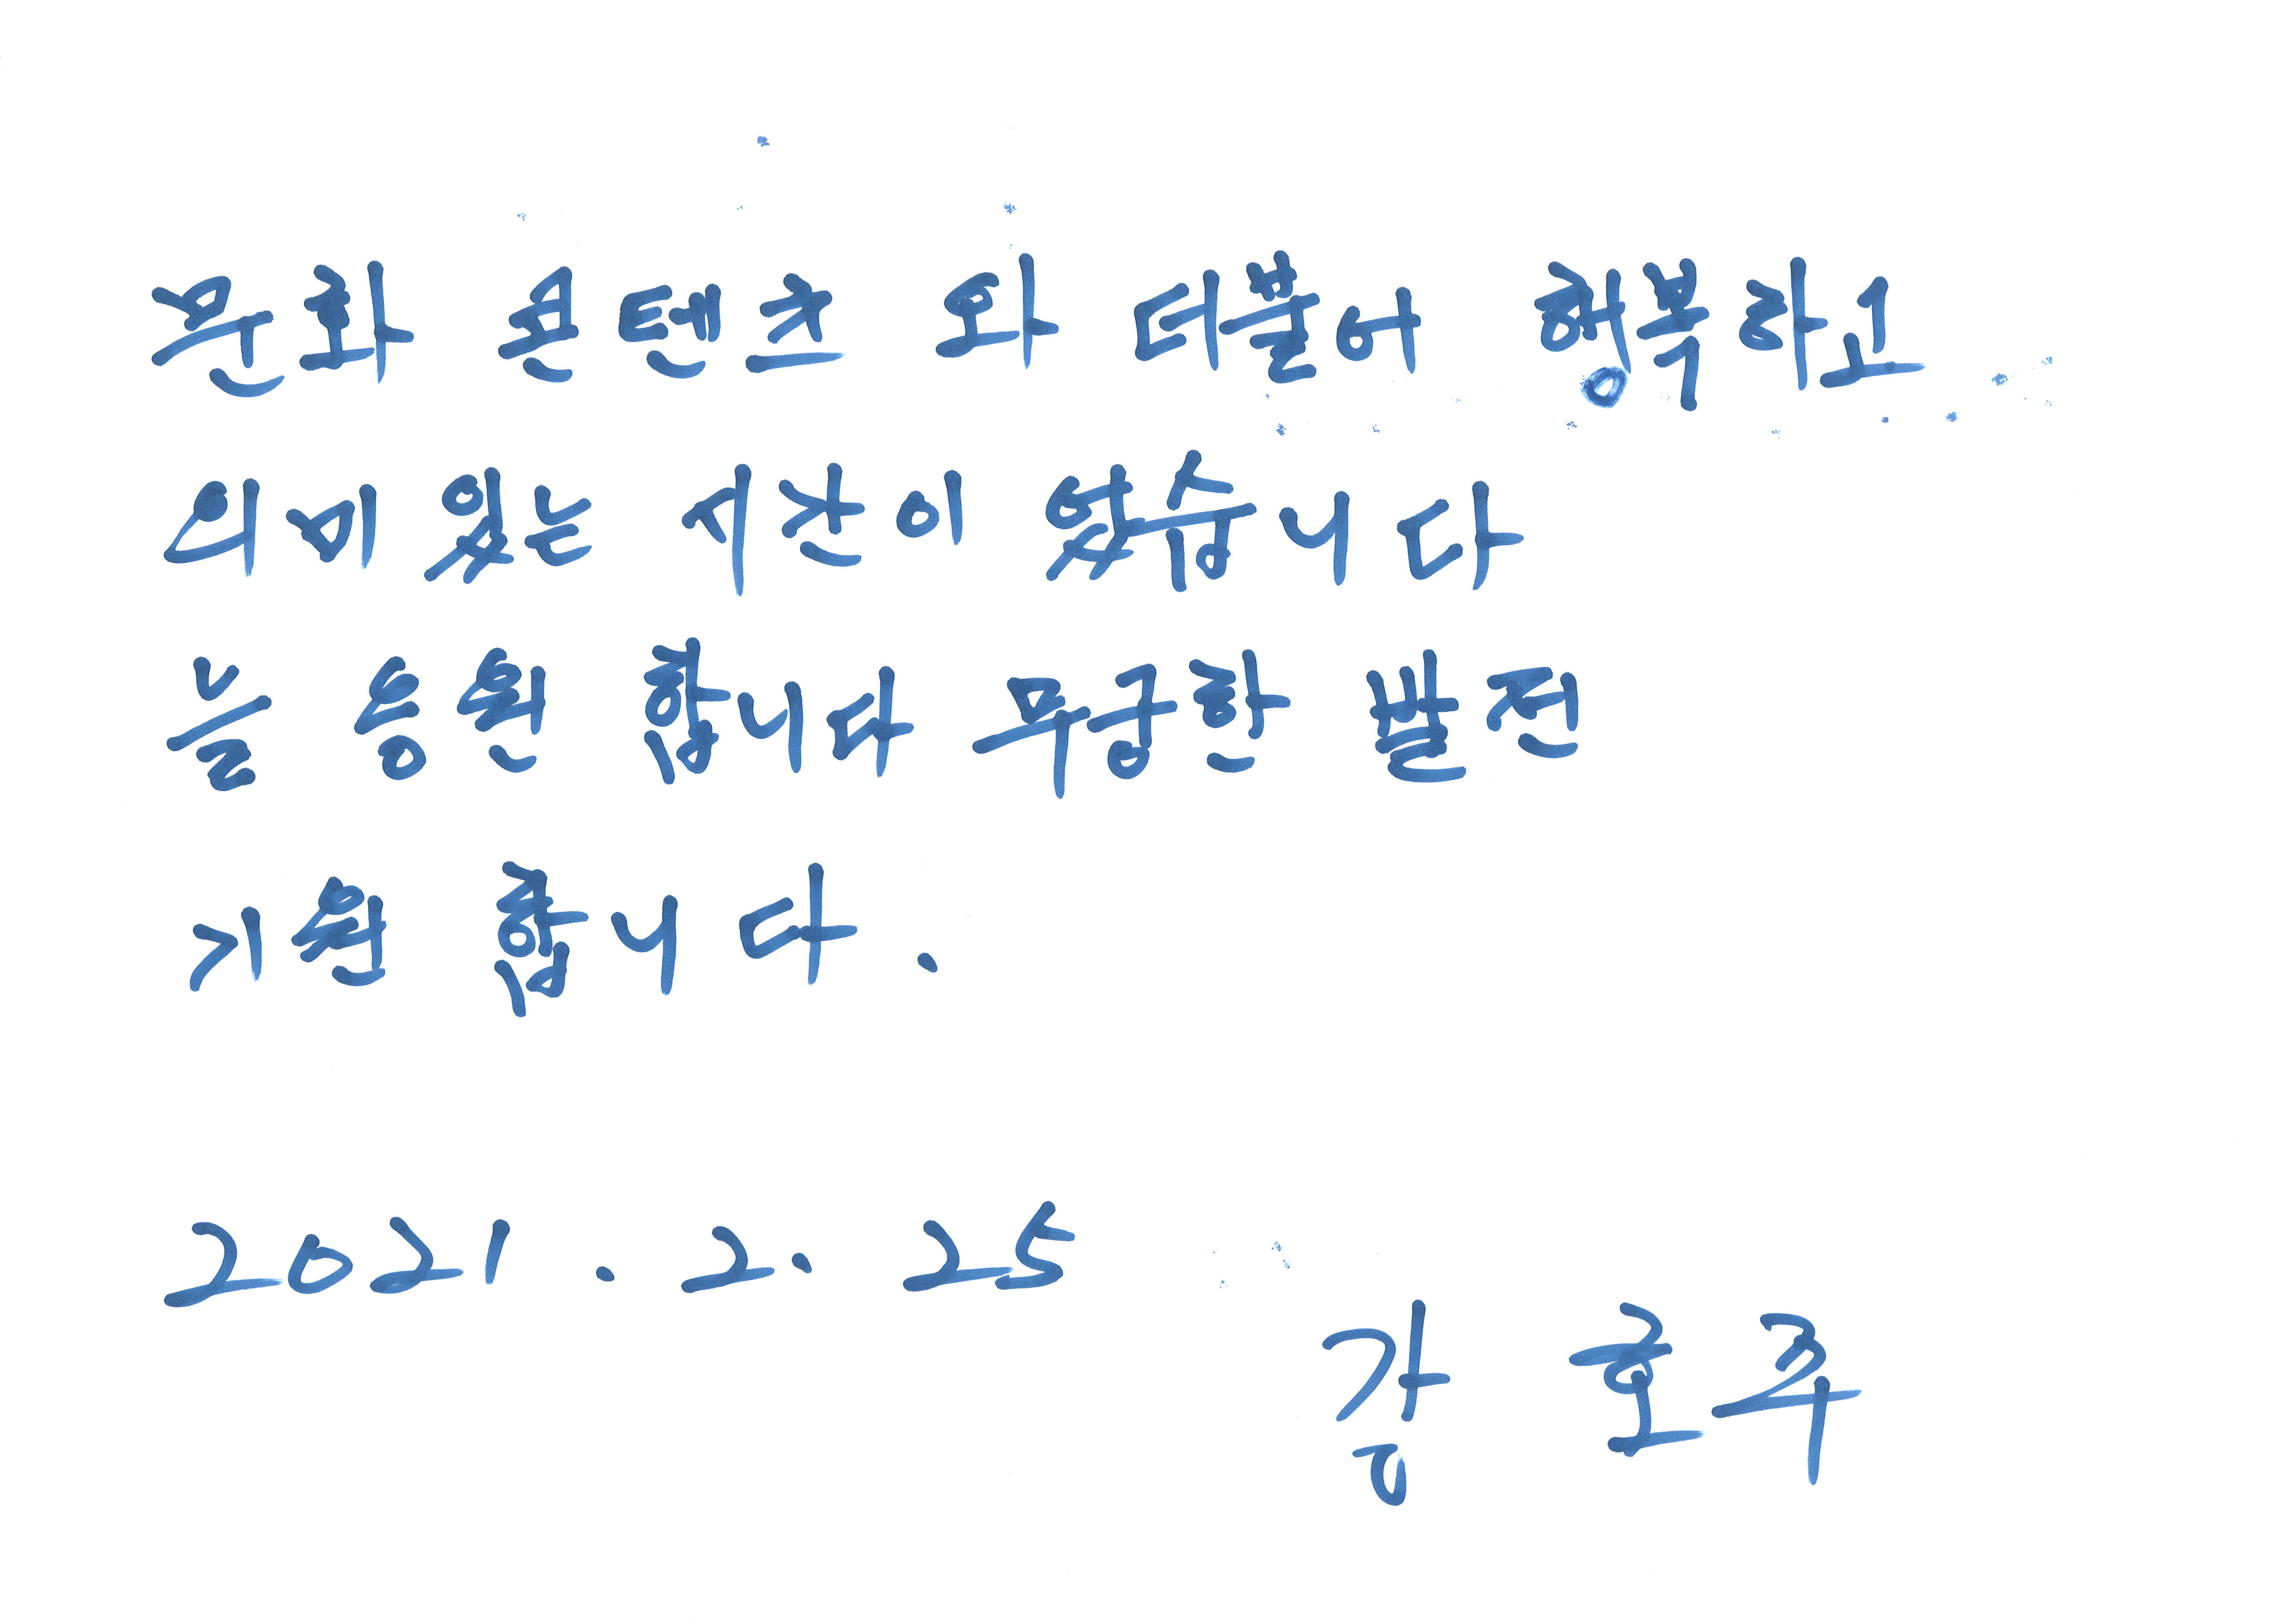 문화 콘텐츠 와 더불어 행복하고
의미 있는 시간이 었습니다
늘 응원 합니다 무궁한 발전
기원 합니다.
2021. 2. 25
호주